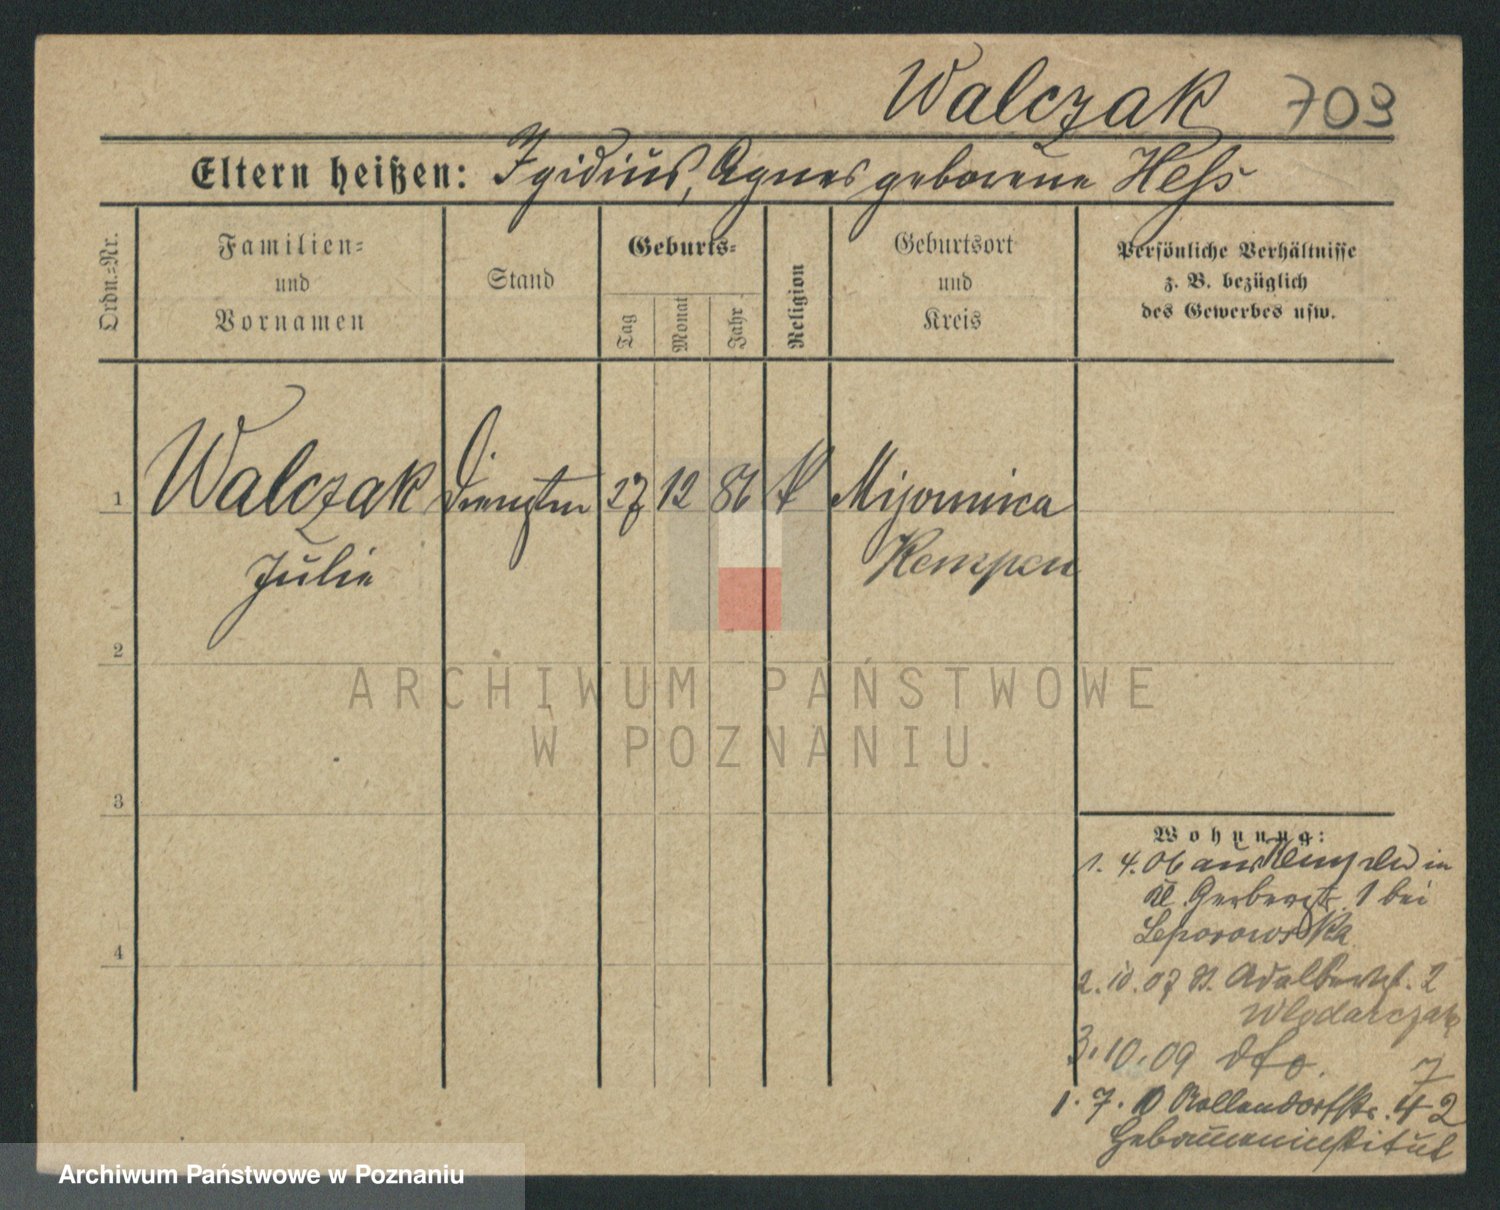 Walczak 709
Eltern heißen: Igidius, Agnes geborene Hess
Ordn.=Nr.
Familien=
und
Vornamen
Stand
Geburts=
Tag
Monat
Jahr
Religion
Geburtsort
und
Kreis
Persönliche Verhältnisse
z. B. bezüglich
des Gewerbes usw.
1 Walczak 27 12 86 k Mijomica
Julie Kempen
2
3
4
ARCHIWUM PAŃSTWOWE
W POZNANIU
Wohnung:
1. 4. 06 aus Kempen in
Kl. Gerberstr. 1 bei
Leporowska
2. 10. 07 St. Adalbertst. 2
Wlodarczak
3. 10. 09 dto. 7
1. 7. 10 42
Hebammeninstitut
Archiwum Państwowe w Poznaniu